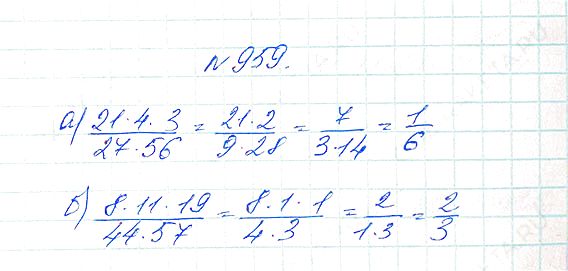 №959.
а) 21·4·3/27·56 = 21·2/9·28 = 7/3·14 = 1/6
б) 8·11·19/44·57 = 8·1·1/4·3 = 2/1·3 = 2/3